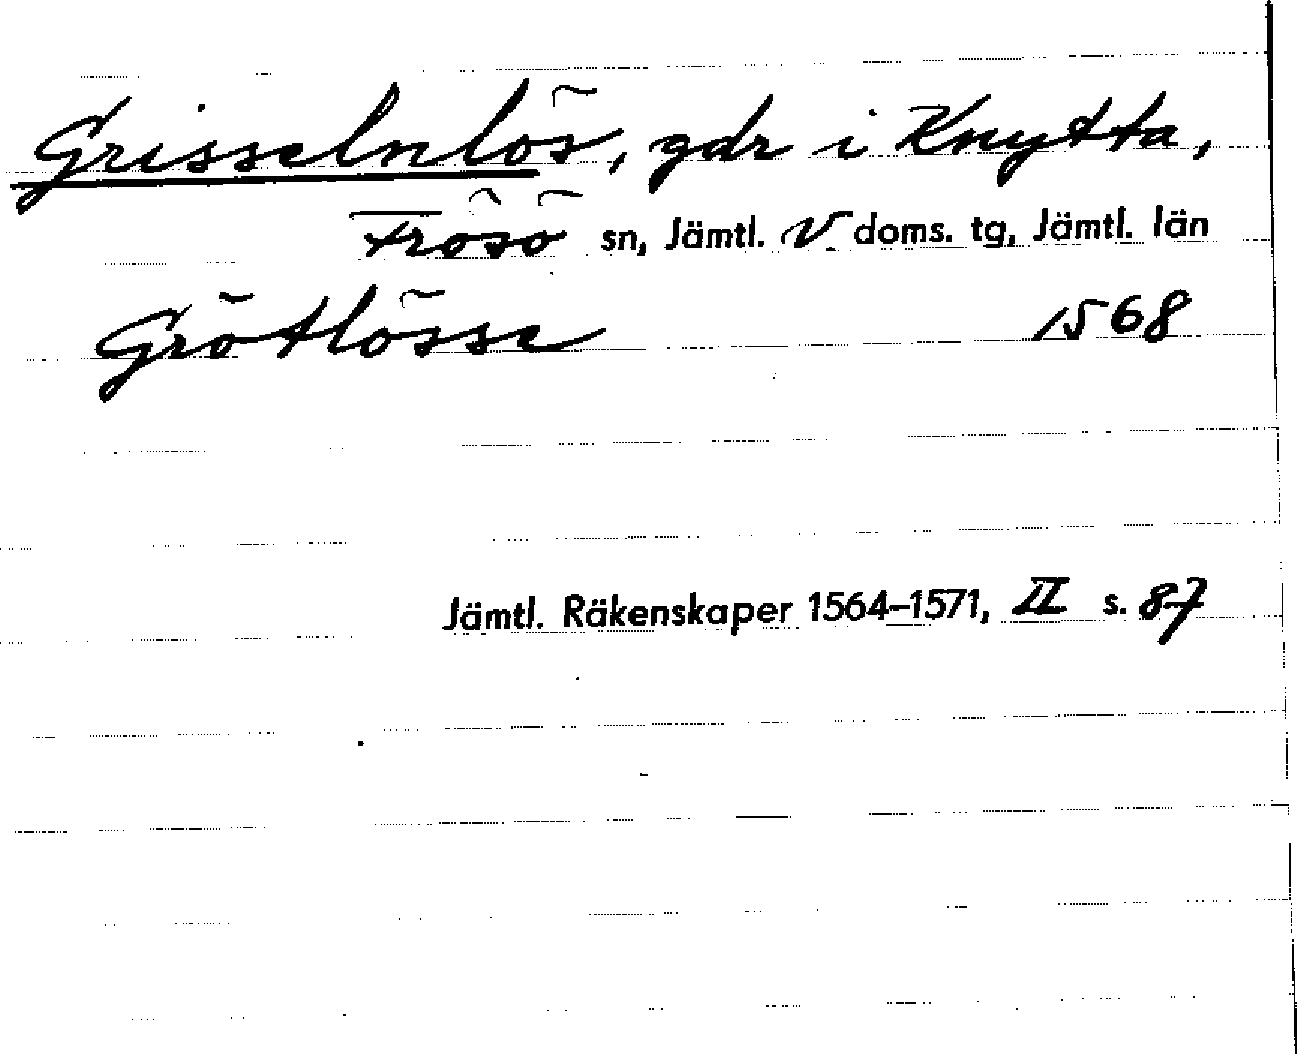 Grisselnlös, gdr i Knytta,
Frösö sn, Jämtl. V doms. tg, Jämtl. län
Grötlösse 1568
Jämtl. Räkenskaper 1564–1571, II s. 87